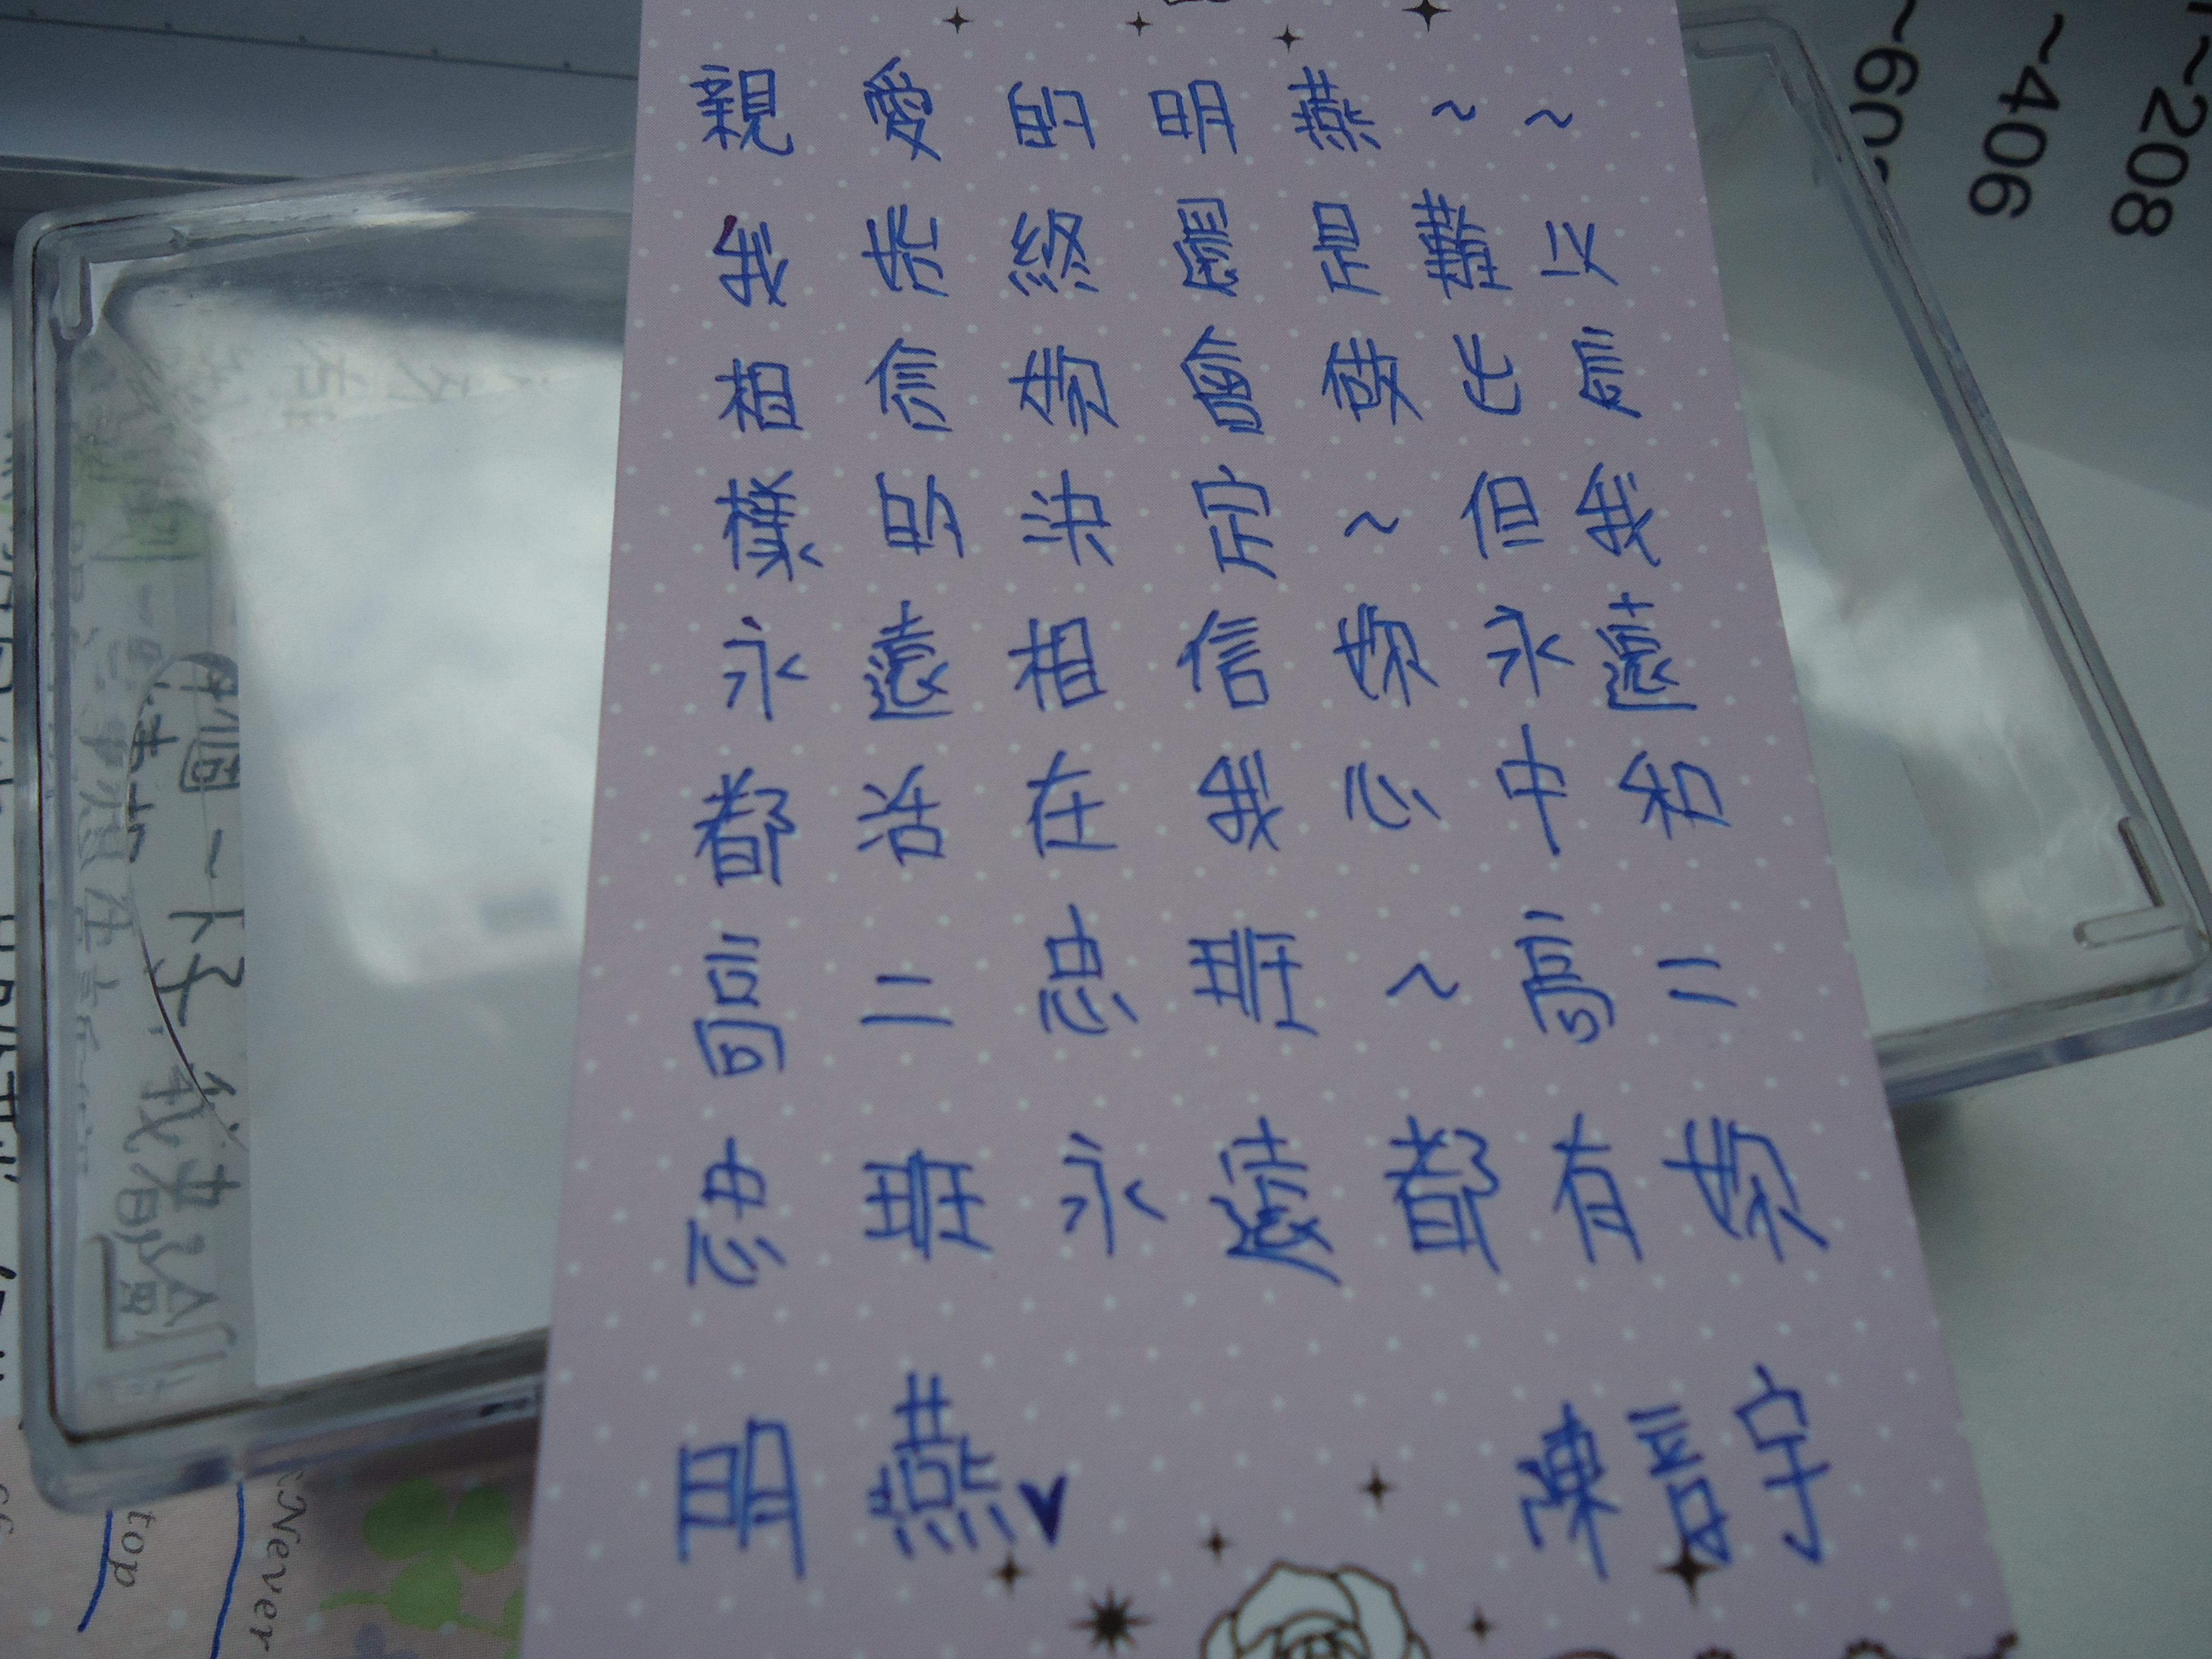 親愛的明燕~~
我始終還是難以
相信妳會做出這
樣的決定~但我
永遠相信妳永遠
都活在我心中和
高二忠班~高二
忠班永遠都有妳
明燕♥
陳宇
~602
~406
~208
個一
top
Never